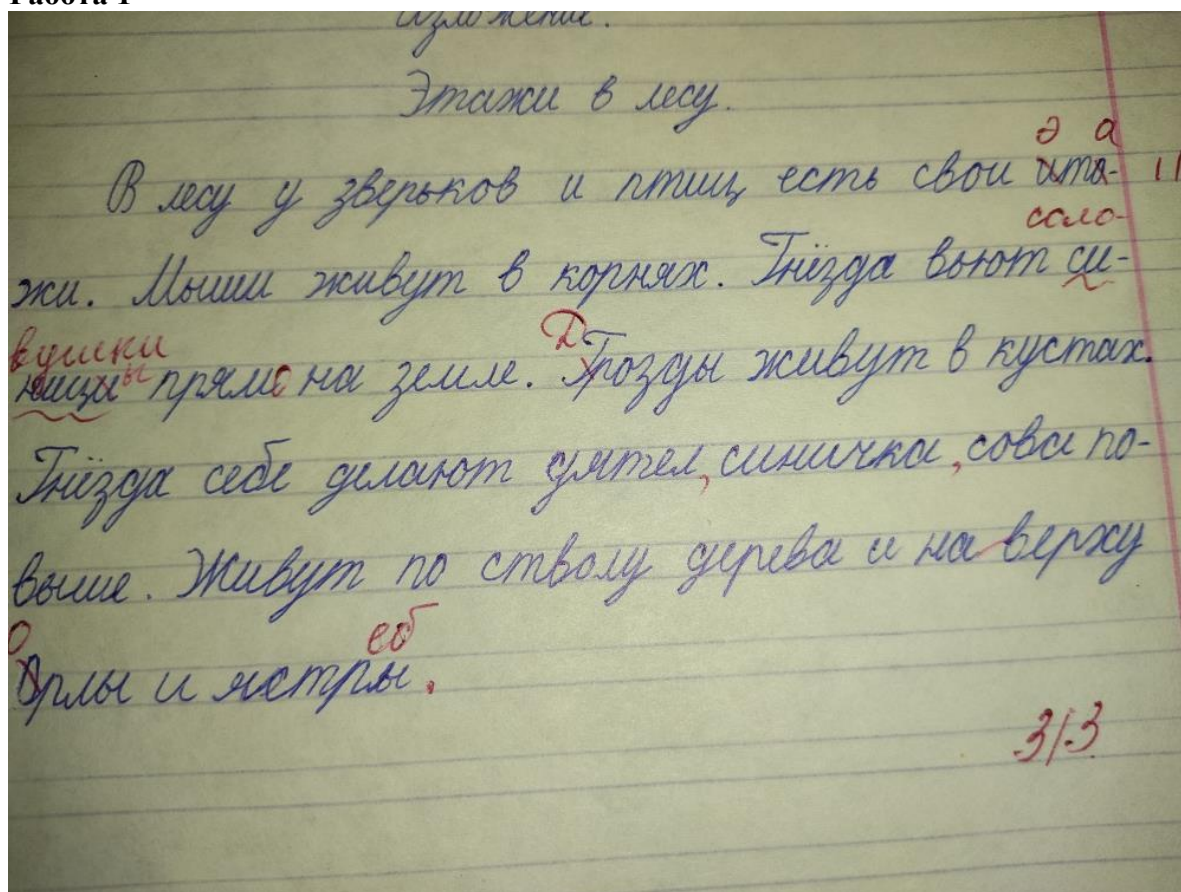 Работа 1
Изложение.
Этажи в лесу.
э а
В лесу у зверьков и птиц есть свои ита- 11
соло-
жи. Мыши живут в корнях. Гнёзда вьют си-
вушки Д
ницы прямо на земле. Грозды живут в кустах.
Гнёзда себе делают дятел, синичка, сова по-
выше. Живут по стволу дерева и на верху
о еб
Орлы и ястры.
3/3